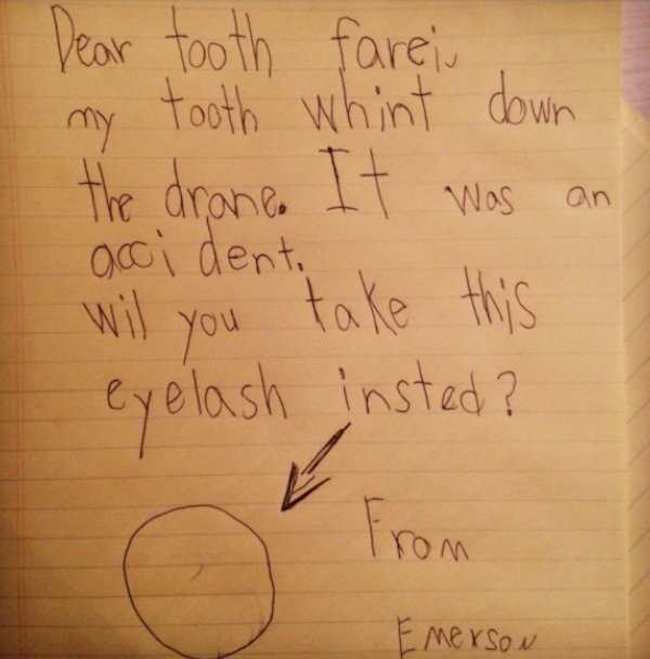 Dear tooth farei,
my tooth whint down
the drane. It was an
accident.
wil you take this
eyelash insted?
From
Emerson